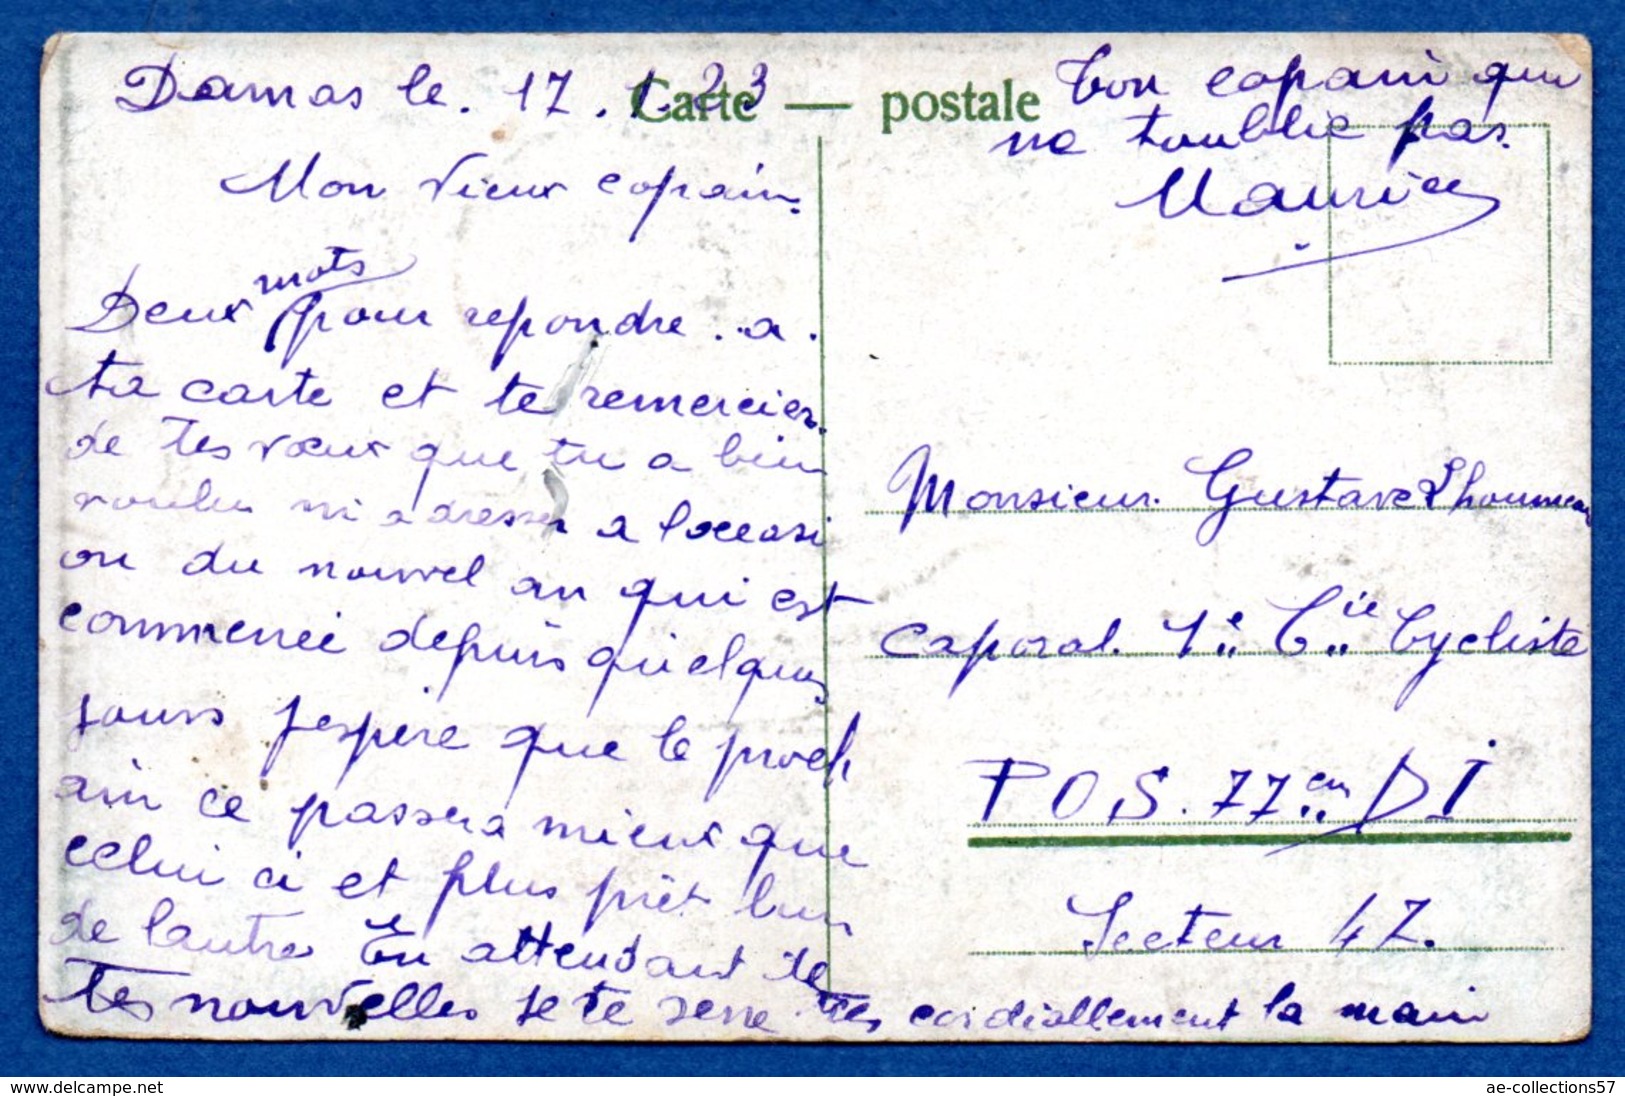 Damas le. 17. 1. 23
Carte — postale
Mon vieux copain.
Deux mots pour repondre. a.
ta carte et te remercier.
de tes vœux que tu a bien
voulu m'adresser a loccasi
on du nouvel an qui est
commencé depuis quelques
jours j'espère que le proch
ain ce passera mieux que
celui ci et plus prêt lun
de lautre En attendant de
tes nouvelles je te serre tres cordiallement la main
Ton copain qui
ne toublie pas.
Maurice
Monsieur. Gustave Lhoumeau
Caporal. 1e Cie Cycliste
P.O.S. 77em DI
Secteur 47.
delcampe.net
ae-collections57